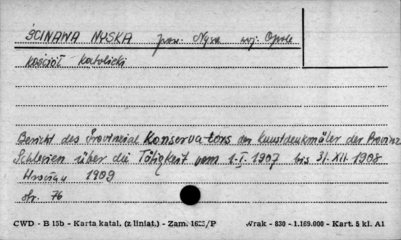 ŚCINAWA NYSKA pow. Nysa woj. Opole
kościół katolicki
Bericht des Provinzial Konservators der Kunstdenkmäler der Provinz
Schlesien über die Tätigkeit vom 1.I.1907 bis 31.XII.1908
Wrocław 1909
str. 76
CWD - B 15b - Karta katal. (z liniat.) - Zam. /P Wrak - 630 - 1.169.000 - Kart. 5 kl. A1